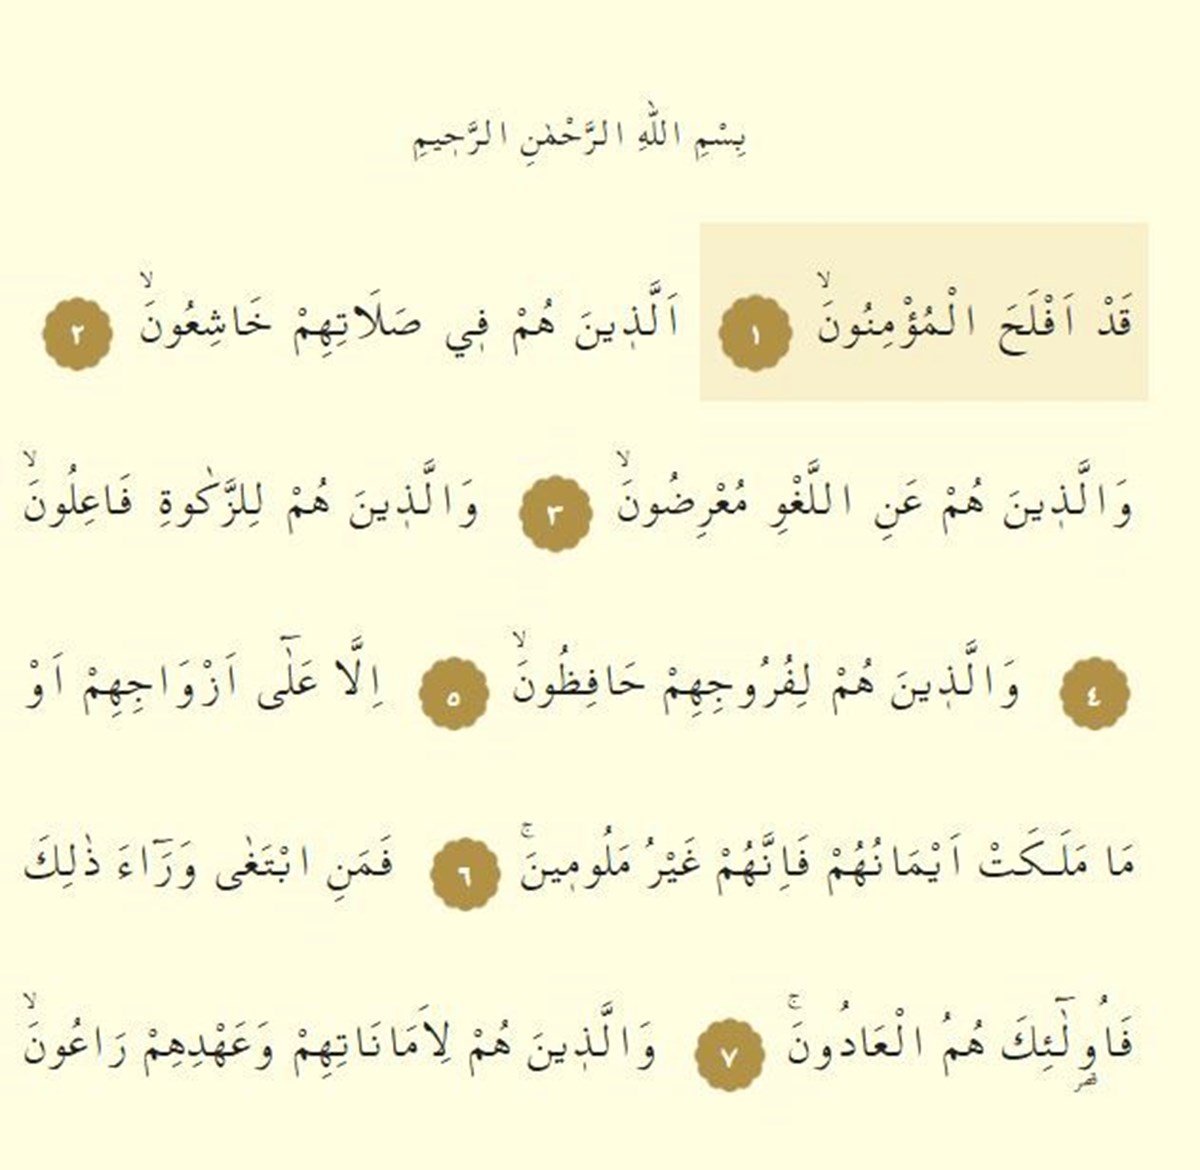 بِسْمِ اللّٰهِ الرَّحْمٰنِ الرَّح۪يمِ
قَدْ اَفْلَحَ الْمُؤْمِنُونَۙ ١ اَلَّذ۪ينَ هُمْ ف۪ي صَلَاتِهِمْ خَاشِعُونَۙ ٢
وَالَّذ۪ينَ هُمْ عَنِ اللَّغْوِ مُعْرِضُونَۙ ٣ وَالَّذ۪ينَ هُمْ لِلزَّكٰوةِ فَاعِلُونَۙ
٤ وَالَّذ۪ينَ هُمْ لِفُرُوجِهِمْ حَافِظُونَۙ ٥ اِلَّا عَلٰٓى اَزْوَاجِهِمْ اَوْ
مَا مَلَكَتْ اَيْمَانُهُمْ فَاِنَّهُمْ غَيْرُ مَلُوم۪ينَۚ ٦ فَمَنِ ابْتَغٰى وَرَٓاءَ ذٰلِكَ
فَاُو۬لٰٓئِكَ هُمُ الْعَادُونَۚ ٧ وَالَّذ۪ينَ هُمْ لِاَمَانَاتِهِمْ وَعَهْدِهِمْ رَاعُونَۙ